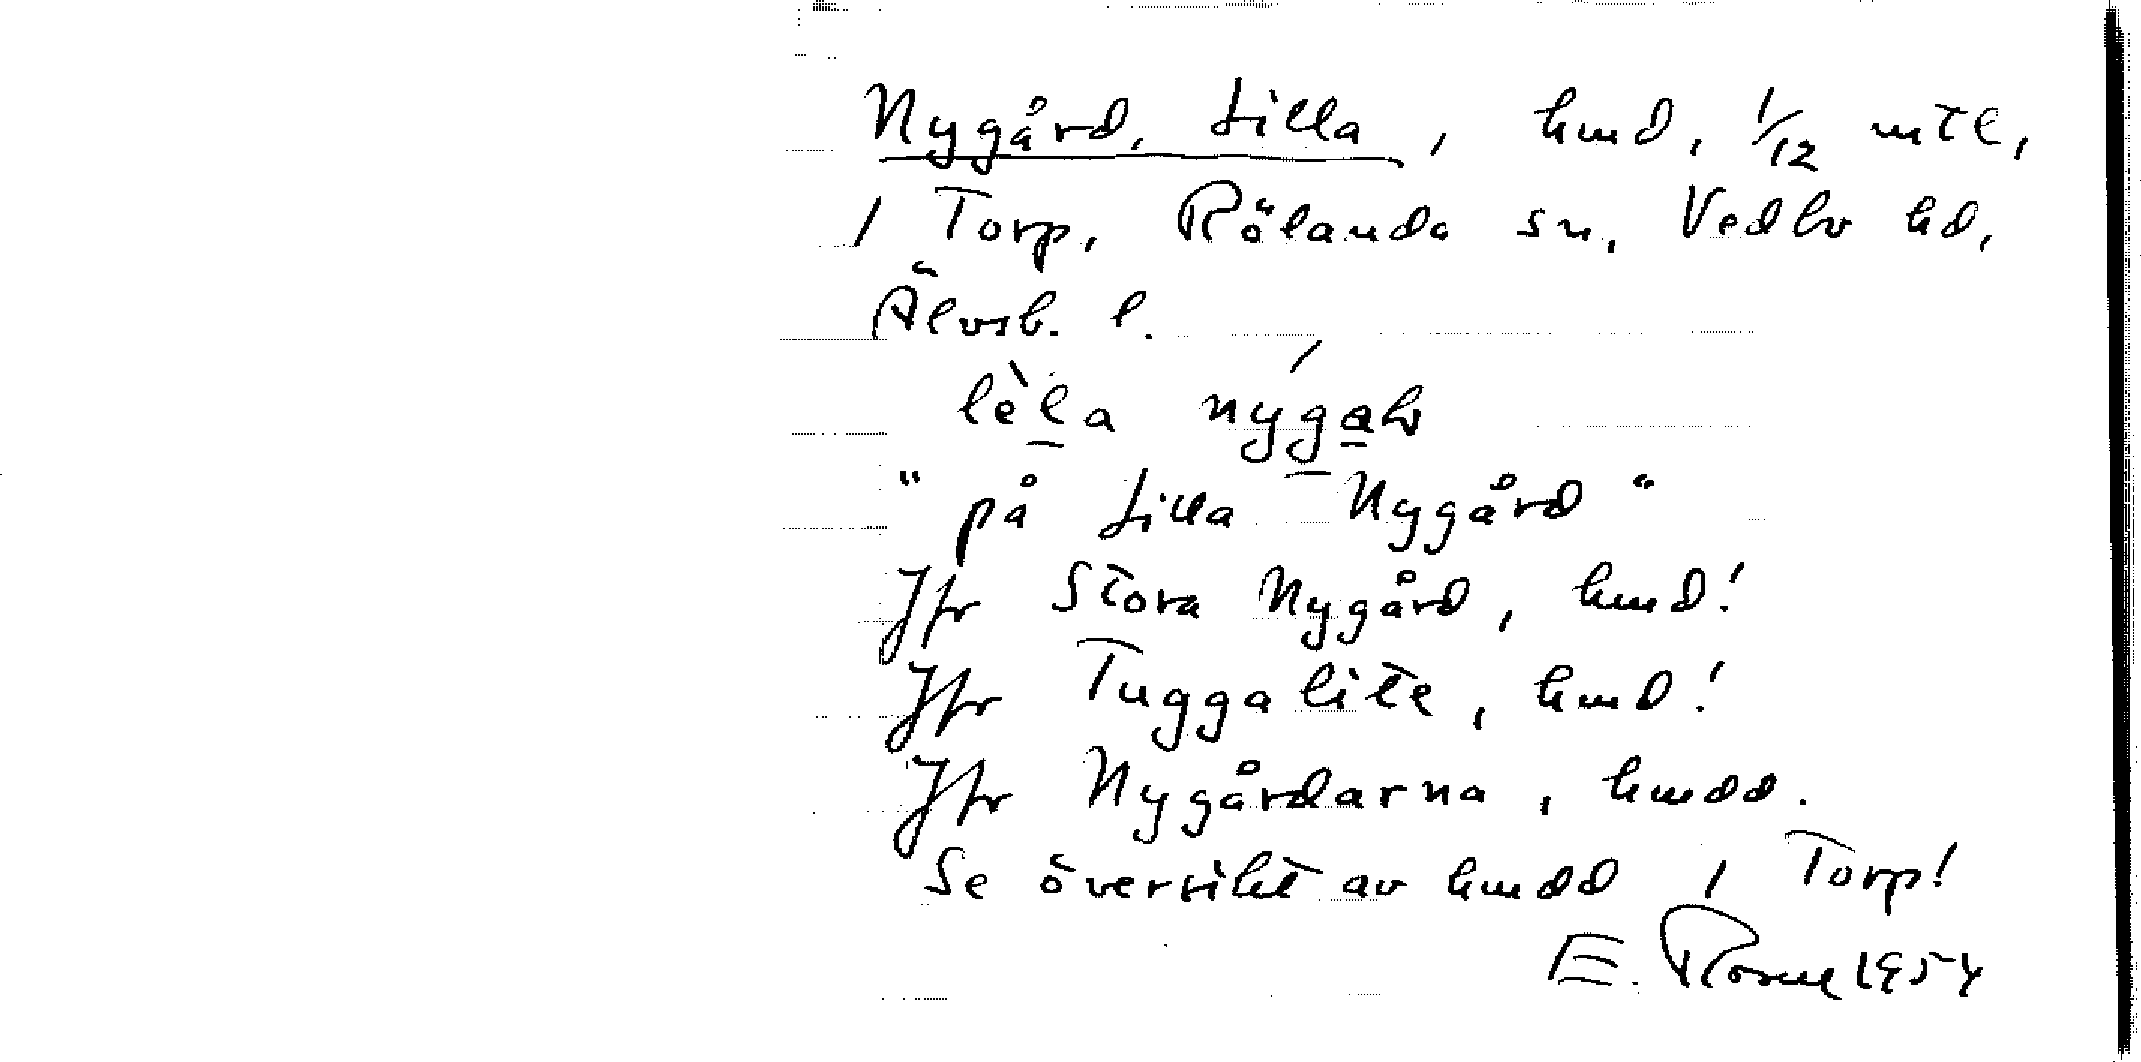 Nygård, Lilla, hmd, 1/12 mtl,
/ Torp, Rölanda sn, Vedbo hd,
Älvsb. l.
lèla nýgaḷ
" på Lilla Nygård "
Jfr Stora Nygård, hmd!
Jfr Tuggalite, hmd!
Jfr Nygårdarna, hmdd.
Se översikt av hmdd / Torp!
E. 1954